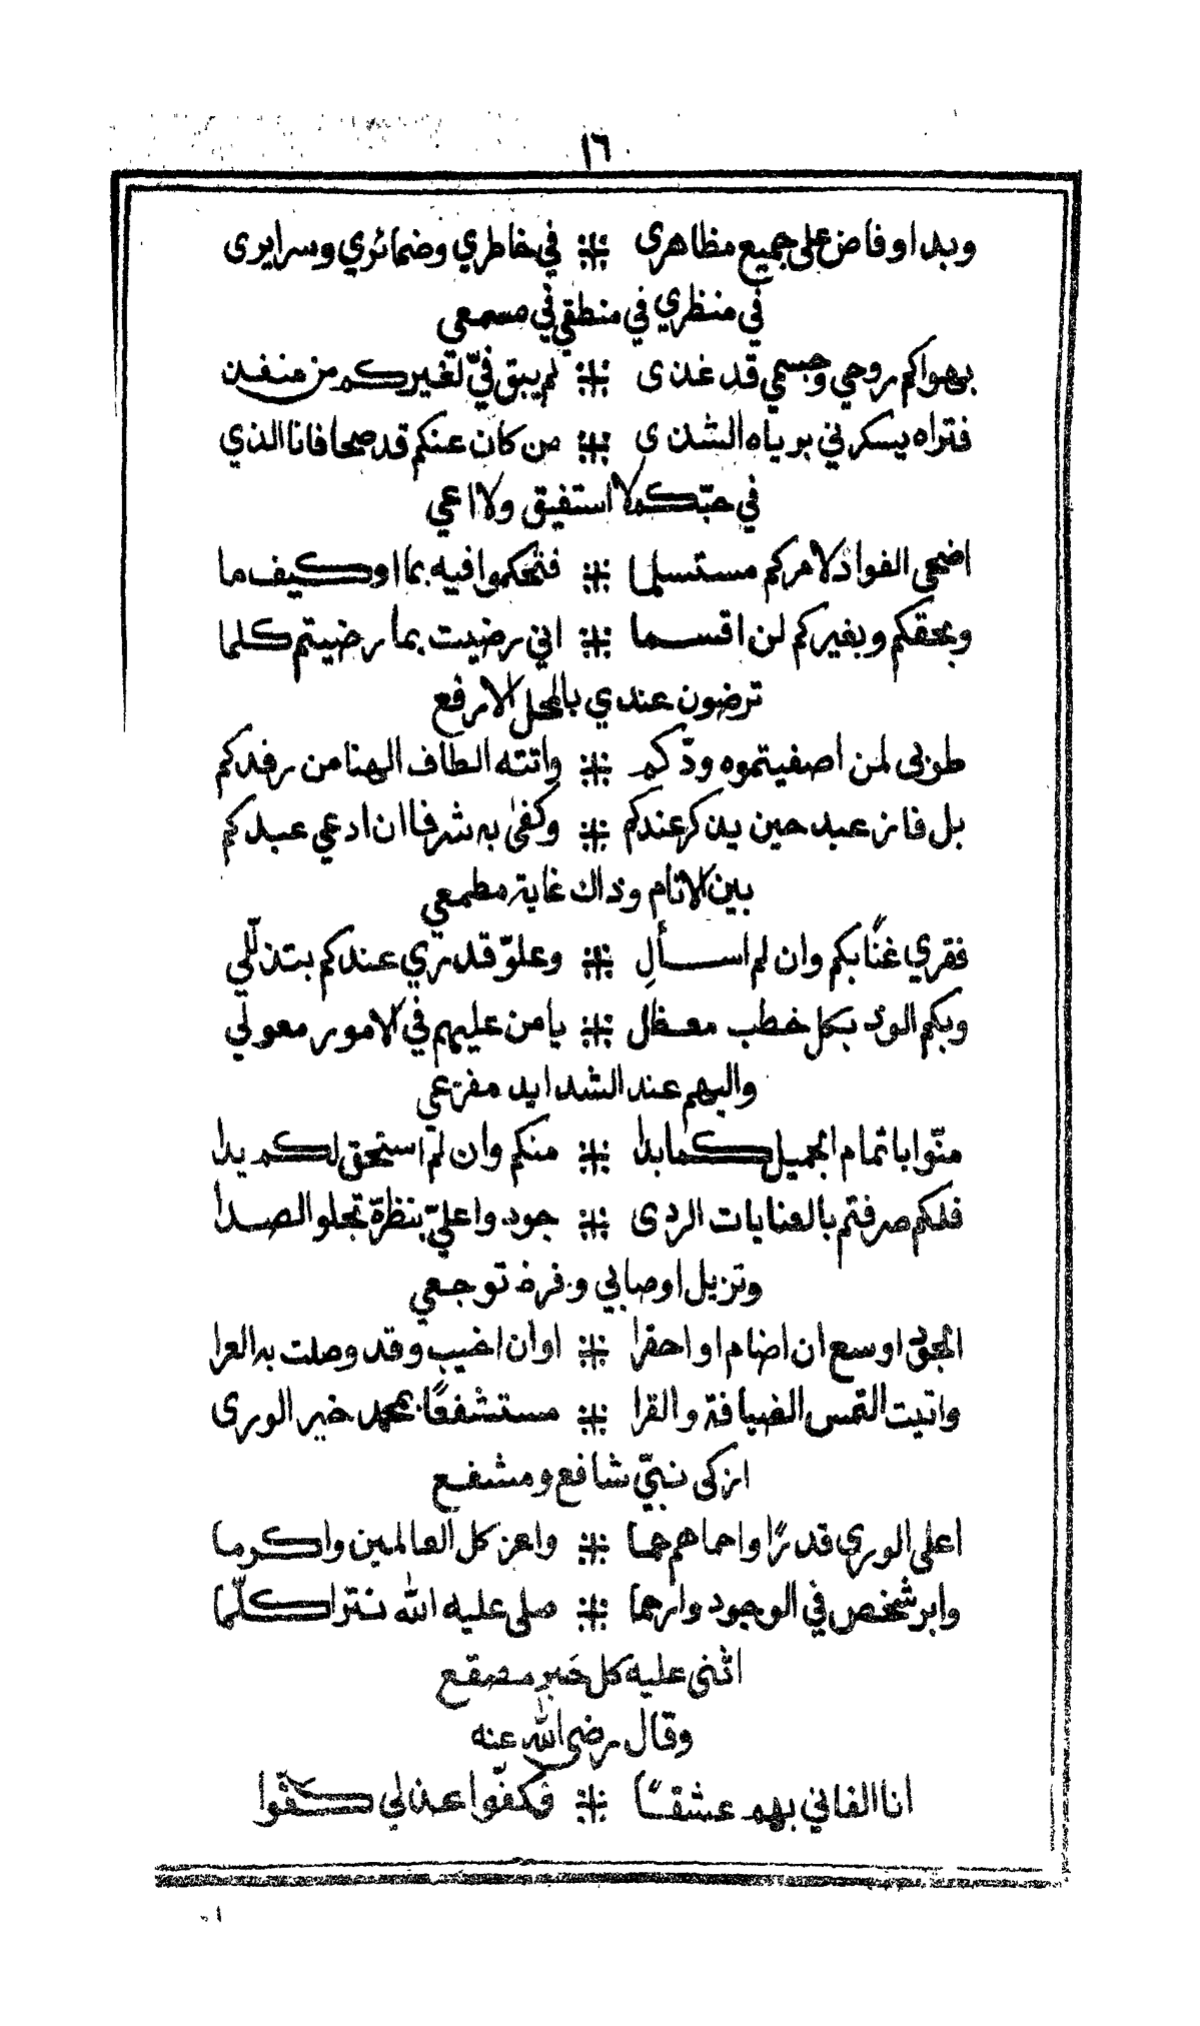 ١٦
وبدا وفاض على جميع مظاهرى ⁜ في خاطري وضمائري وسرايرى
في منظري في منطقي في مسمعي
بهواكم روحي وجسمي قد غذى ⁜ لم يبق فيّ لغيركم من منفذ
فتراه يسكرني برياه الشذى ⁜ من كان عنكم قد صحا فانا الذي
في حبّكم لا استفيق ولا اعي
اضحى الفواد لامركم مستسلما ⁜ فتحكموا فيه بما او كيف ما
وبحقكم وبغيركم لن اقسما ⁜ اني رضيت بما رضيتم كلما
ترضون عندي بالمحل الارفع
طوبى لمن اصفيتموه ودّكم ⁜ واتته الطاف الهنا من رفدكم
بل فاز عبد حين يذكر عندكم ⁜ وكفى به شرفا ان ادعي عبدكم
بين الانام وذاك غاية مطمعي
فقري غنًا بكم وان لم اسألِ ⁜ وعلوّ قدري عندكم بتذلّلي
وبكم الوذ بكل خطب معضل ⁜ يا من عليهم في الامور معولي
واليهم عند الشدايد مفزعي
منّوا باتمام الجميل كما بدا ⁜ منكم وان لم استحق لكم يدا
فلكم صرفتم بالعنايات الردى ⁜ جودوا عليّ بنظرة تجلو الصدا
وتزيل اوصابي وفرط توجعي
الحق اوسع ان اضام او احقرا ⁜ او ان اخيب وقد وصلت به العرا
واتيت التمس الضيافة والقرا ⁜ مستشفعًا بمحمد خير الورى
ازكى نبيّ شافع ومشفع
اعلى الوري قدرًا واحماهم حما ⁜ واعز كل العالمين واكرما
وابر شخص في الوجود وارحما ⁜ صلى عليه الله نترا كلّما
اثنى عليه كل حَبرٍ مصقع
وقال رضي الله عنه
انا الفاني بهم عشقًا ⁜ فكفّوا عذلي كفّوا